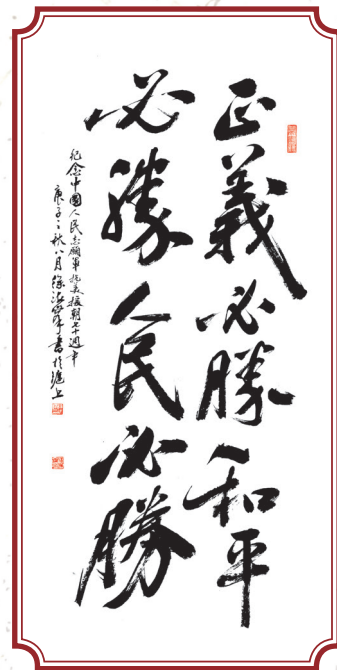 正義必勝和平
必勝人民必勝
紀念中國人民志願軍抗美援朝七十週年
庚子之秋八月徐海寧書於滬上